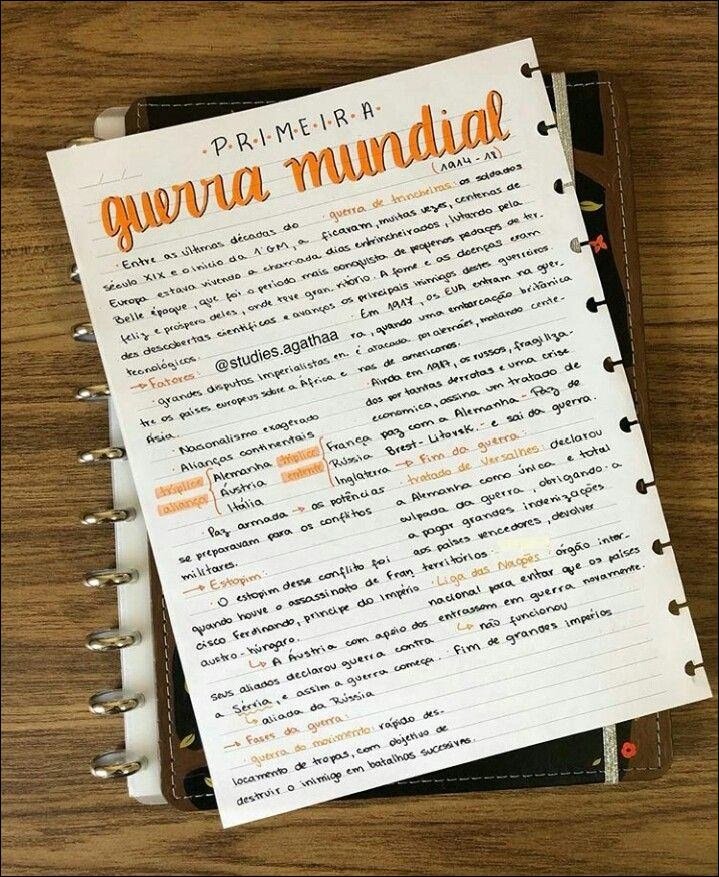 PRIMEIRA
guerra mundial
(1914-18)
· Entre as últimas décadas do
século XIX e o início da 1ª GM, a
Europa estava vivendo a chamada
Belle époque, que foi o período mais
feliz e próspero deles, onde teve gran
des descobertas científicas e avanços
tecnológicos.
→ Fatores:
· grandes disputas imperialistas en.
tre os países europeus sobre a África e
Ásia.
· Nacionalismo exagerado
· Alianças continentais
tríplice aliança { Alemanha
Áustria
Itália
tríplice entente { França
Rússia
Inglaterra
· Paz armada → as potências
se preparavam para os conflitos
militares.
→ Estopim:
· O estopim desse conflito foi
quando houve o assassinato de Fran
cisco Ferdinando, príncipe do Império
austro-húngaro.
↳ A Áustria com apoio dos
seus aliados declarou guerra contra
a Sérvia, e assim a guerra começa.
↳ aliada da Rússia
→ Fases da guerra:
· guerra do movimento: rápido des-
locamento de tropas, com objetivo de
destruir o inimigo em batalhas sucessivas.
· guerra de trincheiras: os soldados
ficaram, muitas vezes, centenas de
dias entrincheirados, lutando pela
conquista de pequenos pedaços de ter.
ritório. A fome e as doenças eram
os principais inimigos destes guerreiros.
· Em 1917, os EUA entram na guer.
ra, quando uma embarcação britânica
é atacada por alemães, matando cente-
nas de americanos.
· Ainda em 1917, os russos, fragiliza-
dos por tantas derrotas e uma crise
economica, assina um tratado de
paz com a Alemanha - Paz de
Brest-Litovsk - e sai da guerra.
→ Fim da guerra:
· tratado de Versalhes: declarou
a Alemanha como única e total
culpada da guerra, obrigando-a
a pagar grandes indenizações
aos países vencedores, devolver
territórios.
· Liga das Nações: órgão inter-
nacional para evitar que os países
entrassem em guerra novamente.
↳ não funcionou
· Fim de grandes impérios
@studies.agathaa